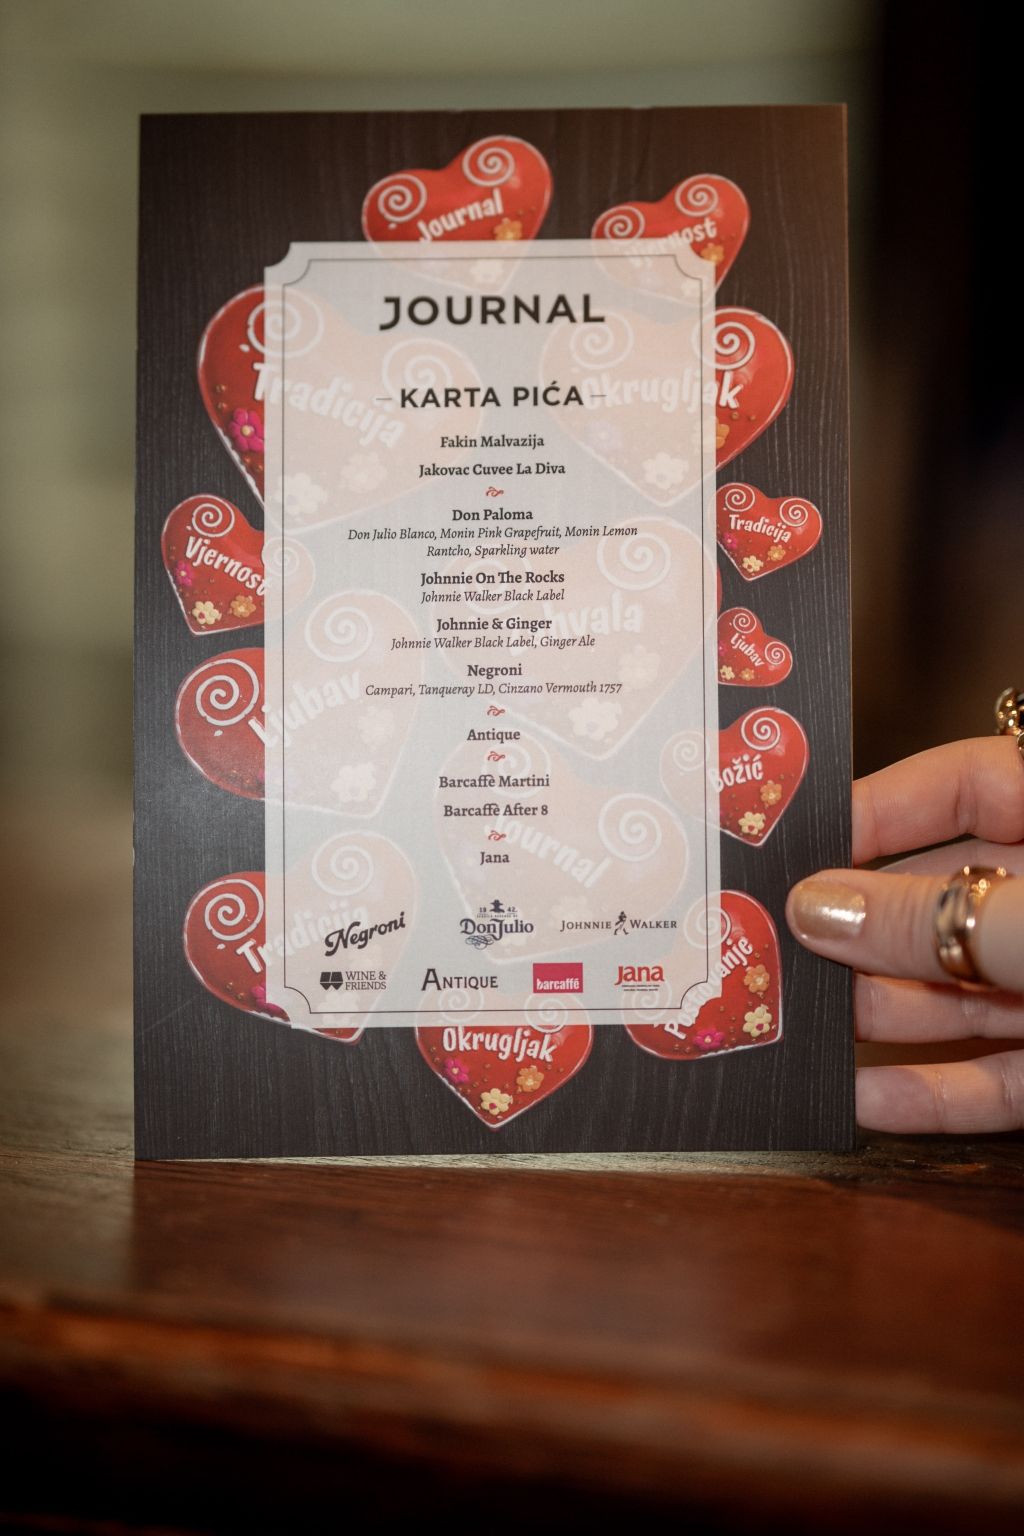 Journal
Vjernost
JOURNAL
Tradicija
Okrugljak
KARTA PIĆA
Fakin Malvazija
Jakovac Cuvee La Diva
Don Paloma
Don Julio Blanco, Monin Pink Grapefruit, Monin Lemon
Rantcho, Sparkling water
Tradicija
Vjernost
Johnnie On The Rocks
Johnnie Walker Black Label
Johnnie & Ginger
Johnnie Walker Black Label, Ginger Ale
Ljubav
Negroni
Campari, Tanqueray LD, Cinzano Vermouth 1757
Ljubav
Antique
Barcaffè Martini
Božić
Barcaffè After 8
Journal
Jana
Tradicija
Negroni
1942.
Don Julio
JOHNNIE WALKER
WINE &
FRIENDS
ANTIQUE
barcaffè
Jana
Okrugljak